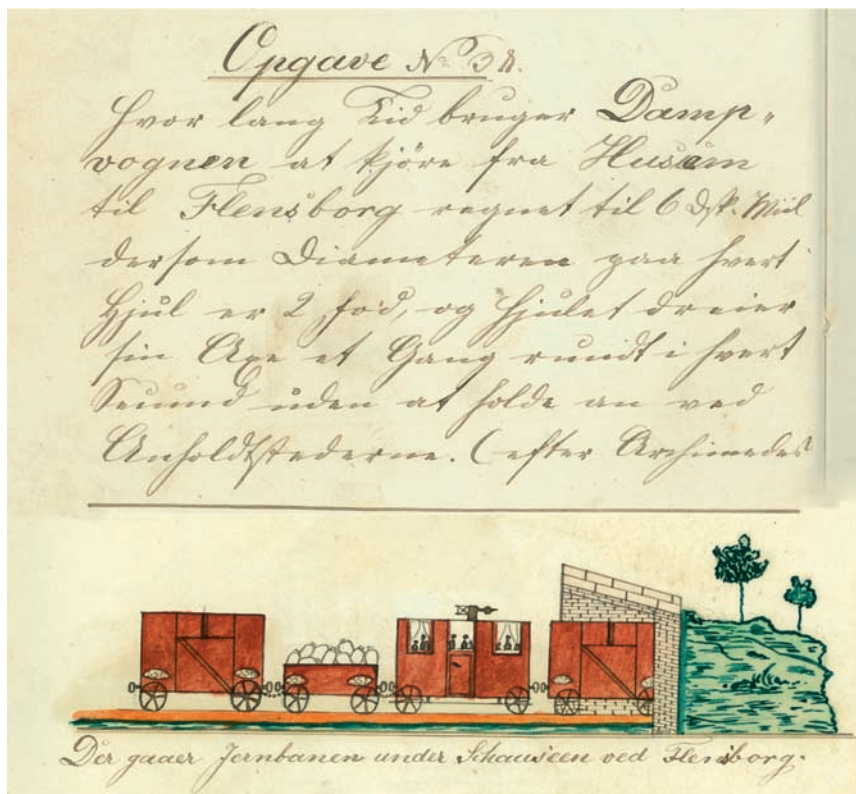 Opgave No 38.
Hvor lang Tid bruger Damp-
vognen at kjöre fra Husum
til Flensborg regnet til 6 Dsk. Miil
dersom Diameteren paa hvert
Hjul er 2 Fod, og Hjulet dreier
sin Axe et Gang rundt i hvert
Secund uden at holde an ved
Anholdtstederne. (efter Archimedes
Der gaaer Jernbanen under Schauseen ved Flensborg.